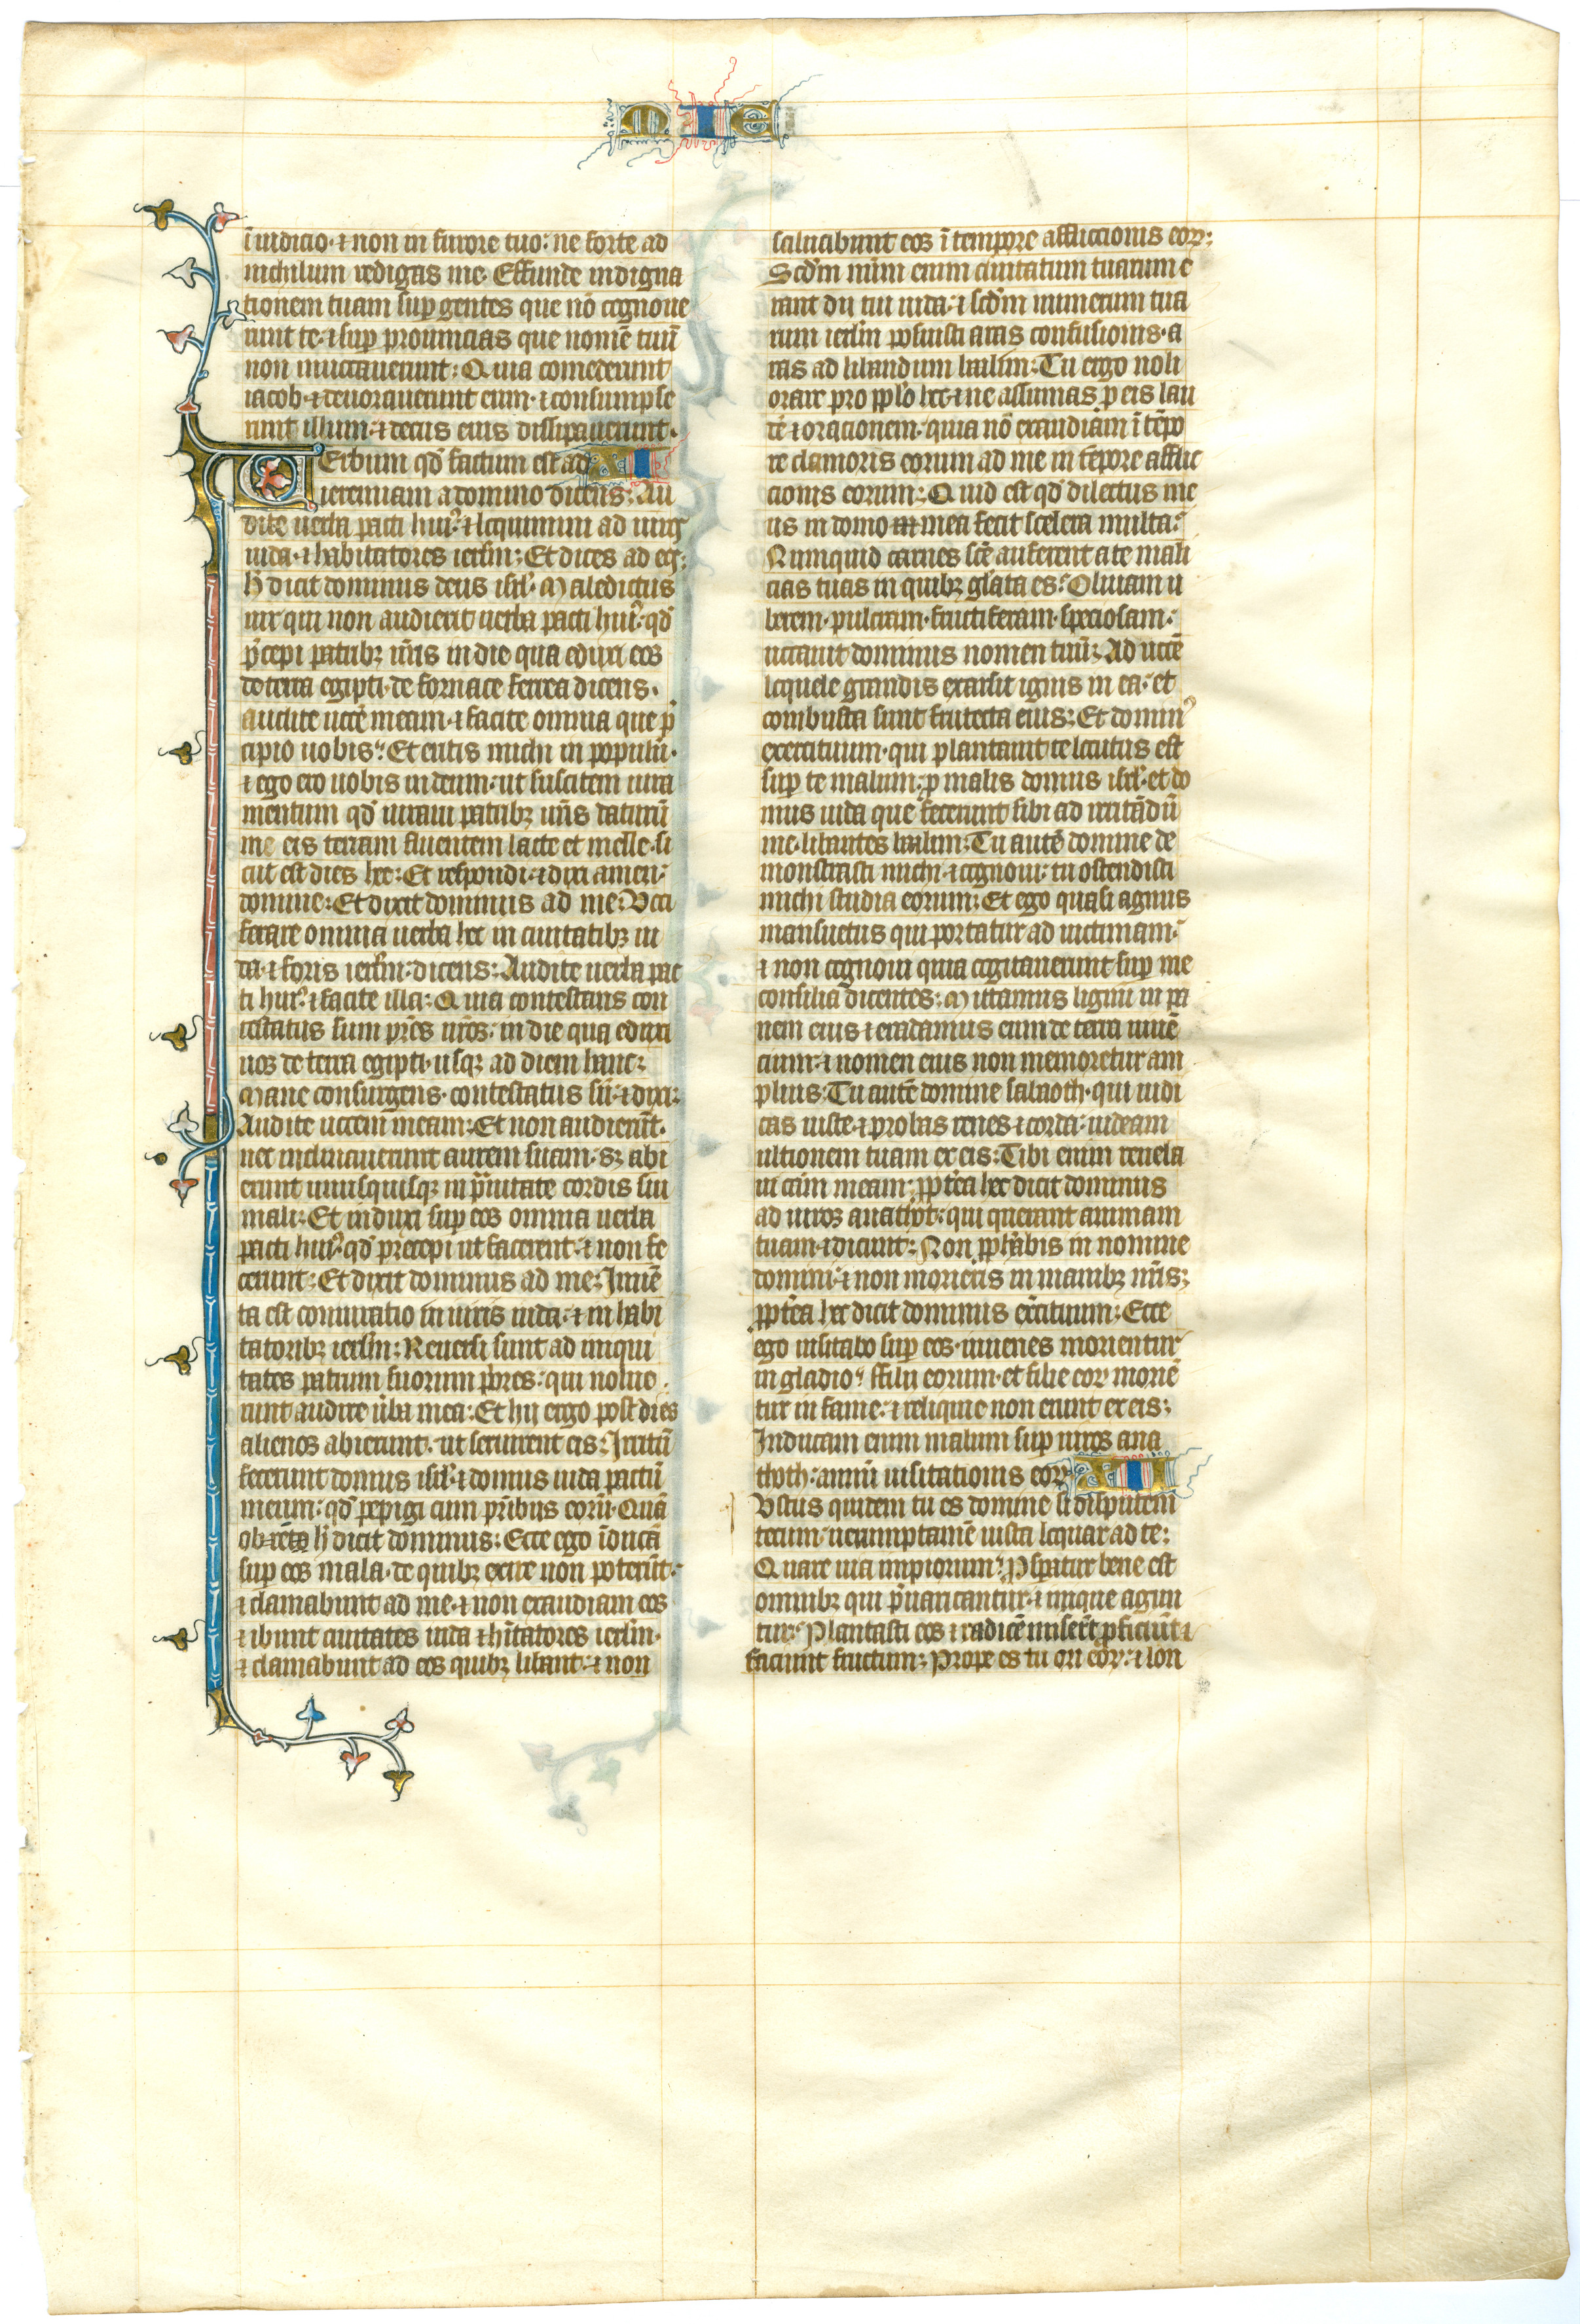 MIE
ī iudicio· ⁊ non in furore tuo: ne forte ad
nichilum redigas me· Effunde indigna
tionem tuam sup̱ gentes que nō cognoue
runt te· ⁊ sup̱ prouincias que nomē tuū
non inuocauerunt: Quia comederunt
iacob· ⁊ deuorauerunt eum· ⁊ consumpse
runt illum· ⁊ decus eius dissipauerunt·
Uerbum qd̄ factum est ad XI
ieremiam a domino dicens: Au
dite uerba pacti huiꝰ· ⁊ loquimini ad uiros
iuda· ⁊ habitatores ierl̄m: Et dices ad eos:
h̄ dicit dominus deus isrl̄· Maledictus
uir qui non audierit uerba pacti huiꝰ: qd̄
p̄cepi patribꝫ ur̄is in die qua eduxi eos
de terra egipti· de fornace ferrea dicens·
audite uocē meam· ⁊ facite omnia que p̄
cipio uobis: Et eritis michi in populū·
⁊ ego ero uobis in deum· ut suscitem iura
mentum qd̄ iuraui patribꝫ ur̄is daturū
me eis terram fluentem lacte et melle· si
cut est dies hec: Et respondi· ⁊ dixi amen·
domine: Et dixit dominus ad me: Voci
ferare omnia uerba hec in ciuitatibꝫ iu
da· ⁊ foris ierl̄m· dicens: Audite uerba pac
ti huiꝰ ⁊ facite illa: Quia contestans con
testatus sum pr̄es ur̄os: in die qua eduxi
uos de terra egipti· usqꝫ ad diem hanc:
Mane consurgens· contestatus sū· ⁊ dixi:
Audite uocem meam: Et non audierūt·
nec inclinauerunt aurem suam· sꝫ abi
erunt unusquisqꝫ in p̄uitate cordis sui
mali: Et induxi sup̱ eos omnia uerba
pacti huiꝰ qd̄ precepi ut facerent· ⁊ non fe
cerunt: Et dixit dominus ad me: Inuē
ta est coniuratio in uiris iuda· ⁊ in habi
tatoribꝫ ierl̄m: Reuersi sunt ad iniqui
tates patrum suorum p̄ores: qui nolue
runt audire ūba mea: Et hij ergo post deos
alienos abierunt· ut seruirent eis: Irritū
fecerunt domus isrl̄· ⁊ domus iuda pactū
meum: qd̄ pepigi cum pr̄ibus eorū· Quā
ob rē h̄ dicit dominus: Ecce ego īducā
sup̱ eos mala· de quibꝫ exire non poterūt·
⁊ clamabunt ad me· ⁊ non exaudiam eos
⁊ ibunt ciuitates iuda ⁊ hītatores ierl̄m·
⁊ clamabunt ad eos quibꝫ libant· ⁊ non
saluabunt eos ī tempore afflictionis eoꝝ:
Scd̄m num̄ enim ciuitatum tuarum e
rant dii tui iuda· ⁊ scd̄m numerum uia
rum ierl̄m posuisti aras confusionis· a
ras ad libandum baalim: Tu ergo noli
orare pro pp̄lo hoc· ⁊ ne assumas p̱ eis lau
dē ⁊ orationem· quia nō exaudiam ī tēpo
re clamoris eorum ad me in tēpore afflic
tionis eorum: Quid est qd̄ dilectus me
us in domo mea fecit scelera multa:
Numquid carnes scē auferent a te mali
cias tuas in quibꝫ glāta es: Oliuam u
berem· pulcram· fructiferam· speciosam·
uocauit dominus nomen tuū: Ad uocē
loquele grandis exarsit ignis in ea· et
combusta sunt frutecta eius: Et dominꝰ
exercituum· qui plantauit te locutus est
sup̱ te malum: p̱ malis domus isrl̄· et do
mus iuda que fecerunt sibi ad irritādū
me· libantes baalim: Tu autē domine de
monstrasti michi ⁊ cognoui· tu ostendisti
michi studia eorum: Et ego quasi agnus
mansuetus qui portatur ad uictimam:
⁊ non cognoui quia cogitauerunt sup̱ me
consilia dicentes: Mittamus lignū in pa
nem eius ⁊ eradamus eum de terra uiuē
cium· ⁊ nomen eius non memoretur am
plius: Tu autē domine sabaoth· qui iudi
cas iuste· ⁊ probas renes ⁊ corda· uideam
ultionem tuam ex eis: Tibi enim reuela
ui cām meam: pp̄tea hec dicit dominus
ad uiros anathot: qui querunt animam
tuam· ⁊ dicunt: Non pp̄habis in nomine
domini· ⁊ non morieris in manibꝫ nr̄is:
pp̄tea hec dicit dominus exc̄ituum: Ecce
ego uisitabo sup̱ eos· iuuenes morientur
in gladio· ffilii eorum· et filie eoꝝ moriē
tur in fame: ⁊ reliquie non erunt ex eis:
Inducam enim malum sup̱ uiros ana
thoth: annū uisitationis eoꝝ XII
Iustus quidem tu es domine si disputem
tecum· uerumptamē iusta loquar ad te:
Quare uia impiorum Ꝓsp̱atur bene est
omnibꝫ qui p̄uaricantur· ⁊ inique agun
tur: Plantasti eos ⁊ radicē miser̄t ꝓficiūt ⁊
faciunt fructum: Prope es tu ori eoꝝ: ⁊ lon